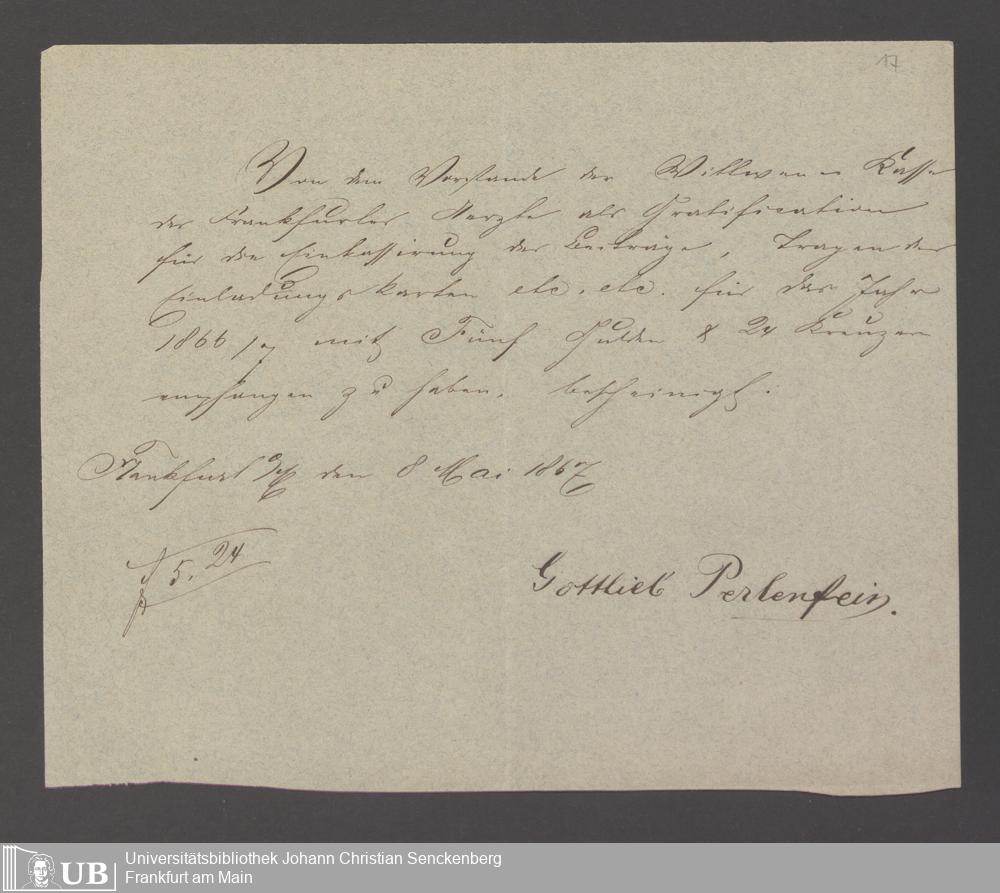 17
Von dem Vorstande der Wittwen = Kasse
der Frankfurter Aerzte als Gratification
für die Einkassirung der Beiträge, Tragen der
Einladungskarten etc. etc. für das Jahr
1866 mit Fünf Gulden & 24 Kreuzer
empfangen zu haben, bescheinigt.
Frankfurt a/M den 8 Mai 1867
f 5. 24
Gottlieb Perlenfein.
UB
Universitätsbibliothek Johann Christian Senckenberg
Frankfurt am Main